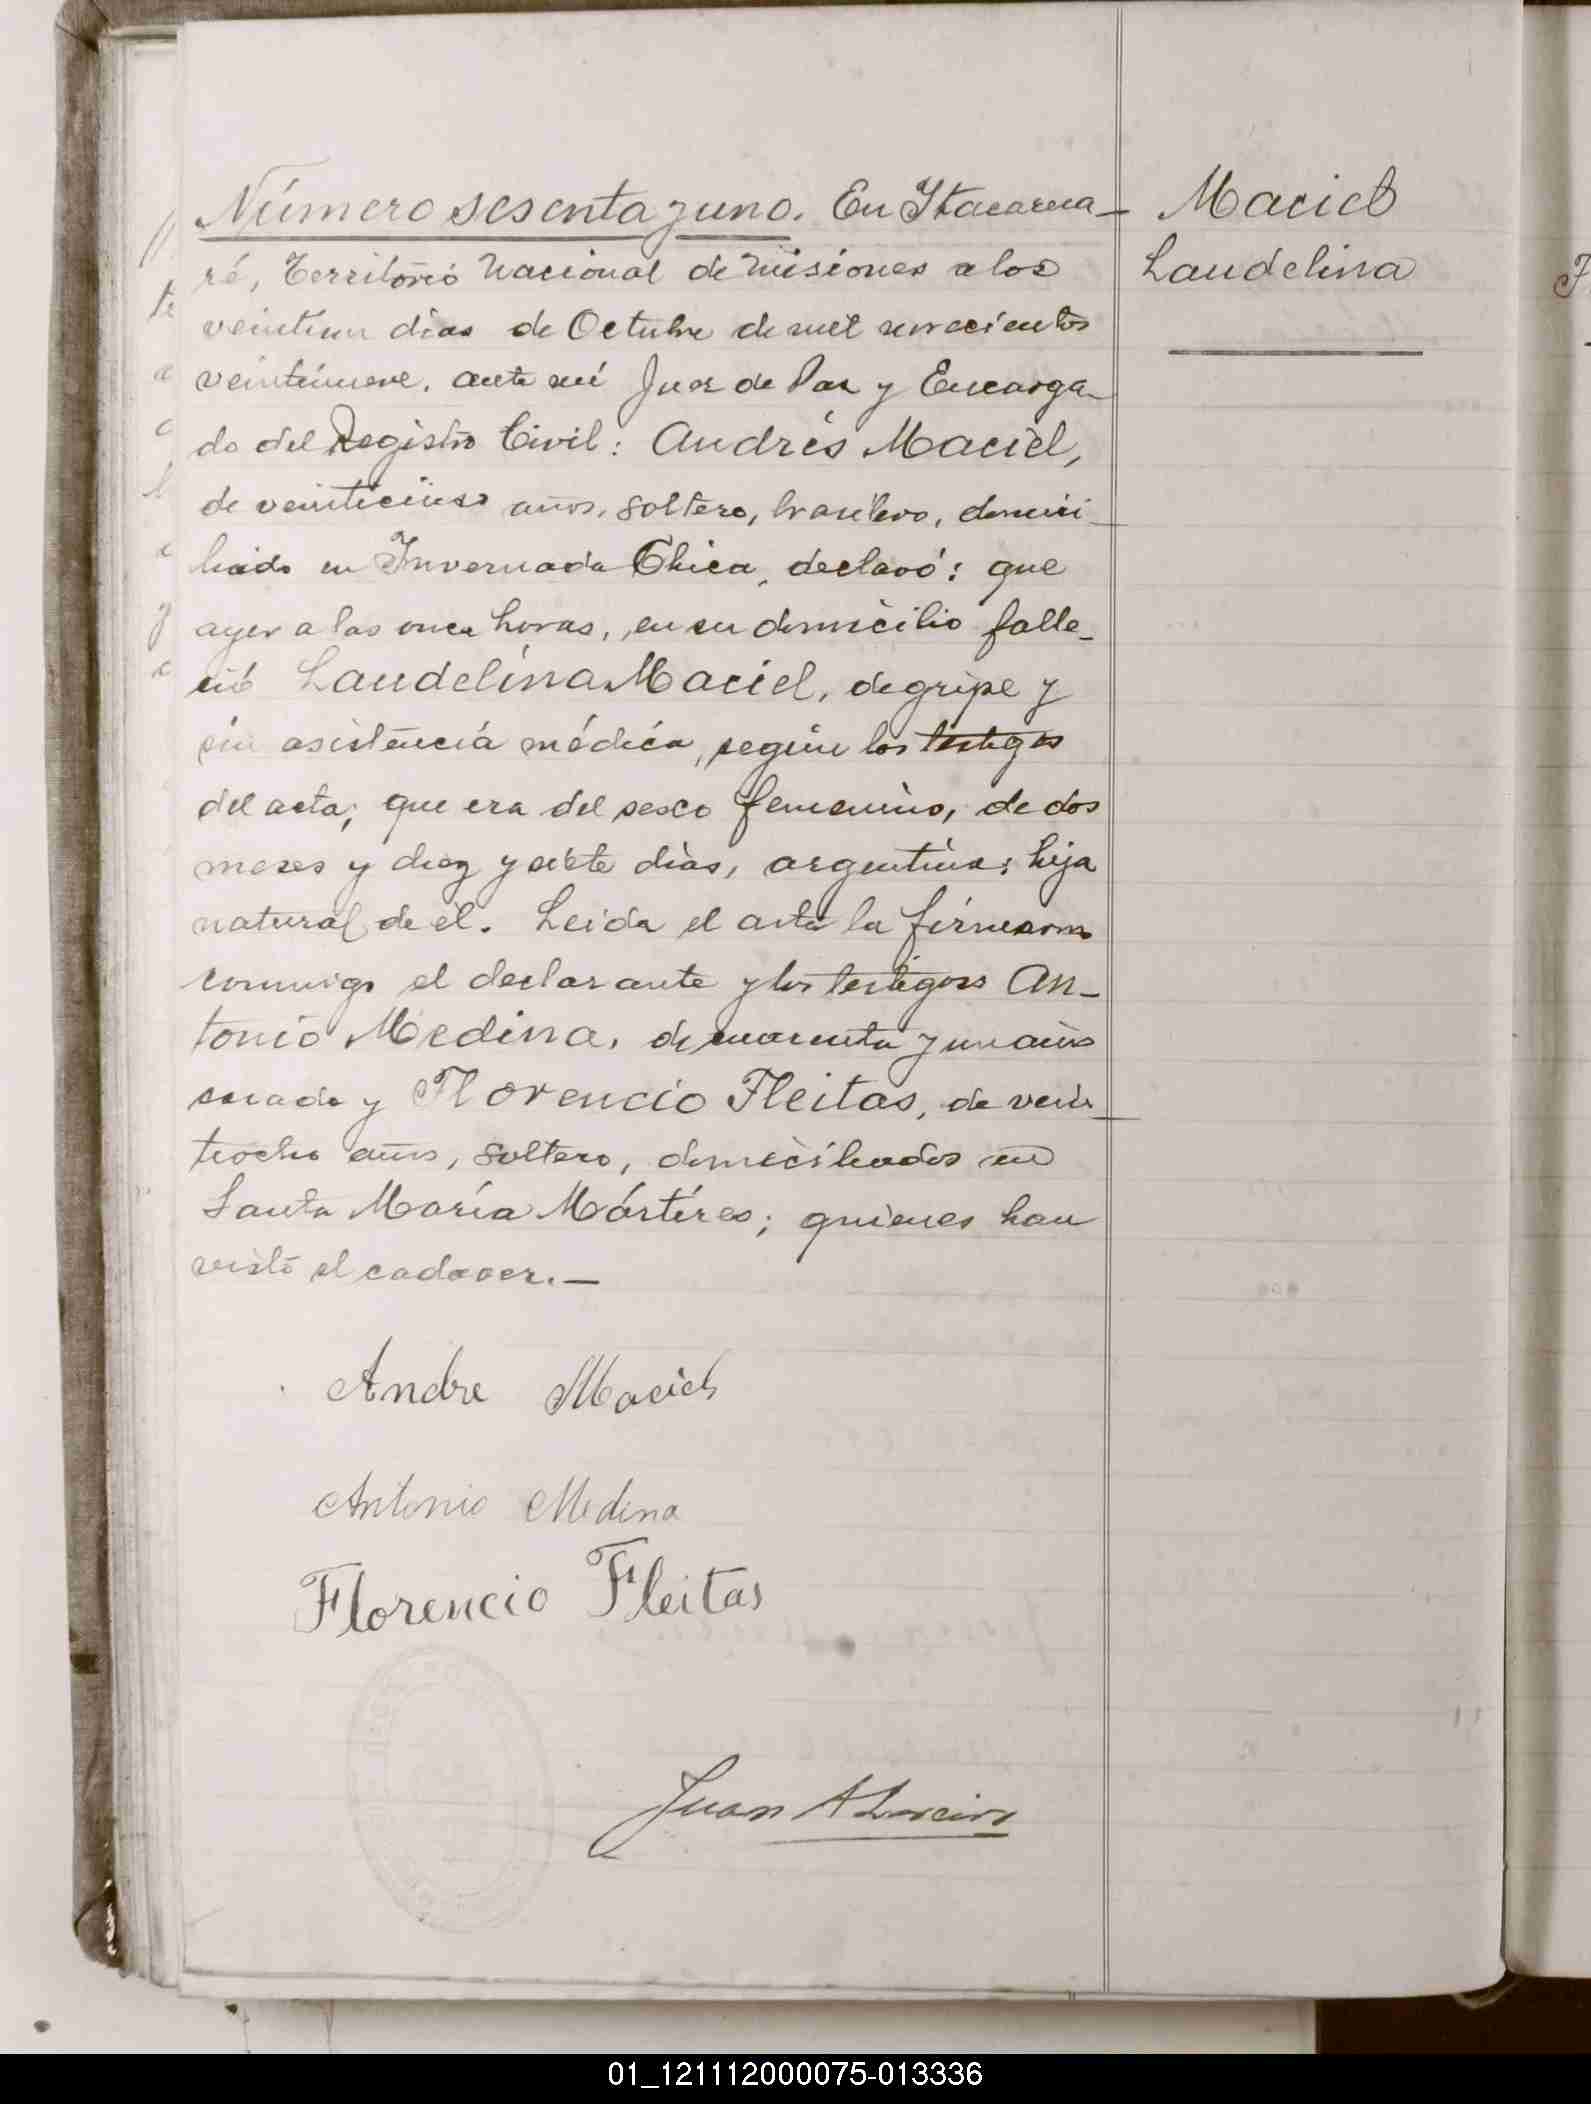 Número sesenta y uno. En Itacarua-
ré, Territorio Nacional de Misiones a los
veintiun dias de Octubre de mil novecientos
veintinueve, ante mí Juez de Paz y Encarga-
do del Registro Civil: Andrés Maciel,
de veinticinco años, soltero, brasilero, domici-
liado en Invernada Chica, declaró: que
ayer a las once horas, en su domicilio falle-
ció Laudelina Maciel, de gripe y
sin asistencia médica, según los testigos
del acta, que era del sexo femenino, de dos
meses y diez y siete dias, argentina; hija
natural de él. Leida el acta la firmaron
conmigo el declarante y los testigos An-
tonio Medina, de cuarenta y un años
casado y Florencio Fleitas, de vein-
tiocho años, soltero, domiciliados en
Santa María Mártires; quienes han
visto el cadaver.—
Andre Maciel
Antonio Medina
Florencio Fleitas
Juan A
Maciel
Laudelina
01_121112000075-013336